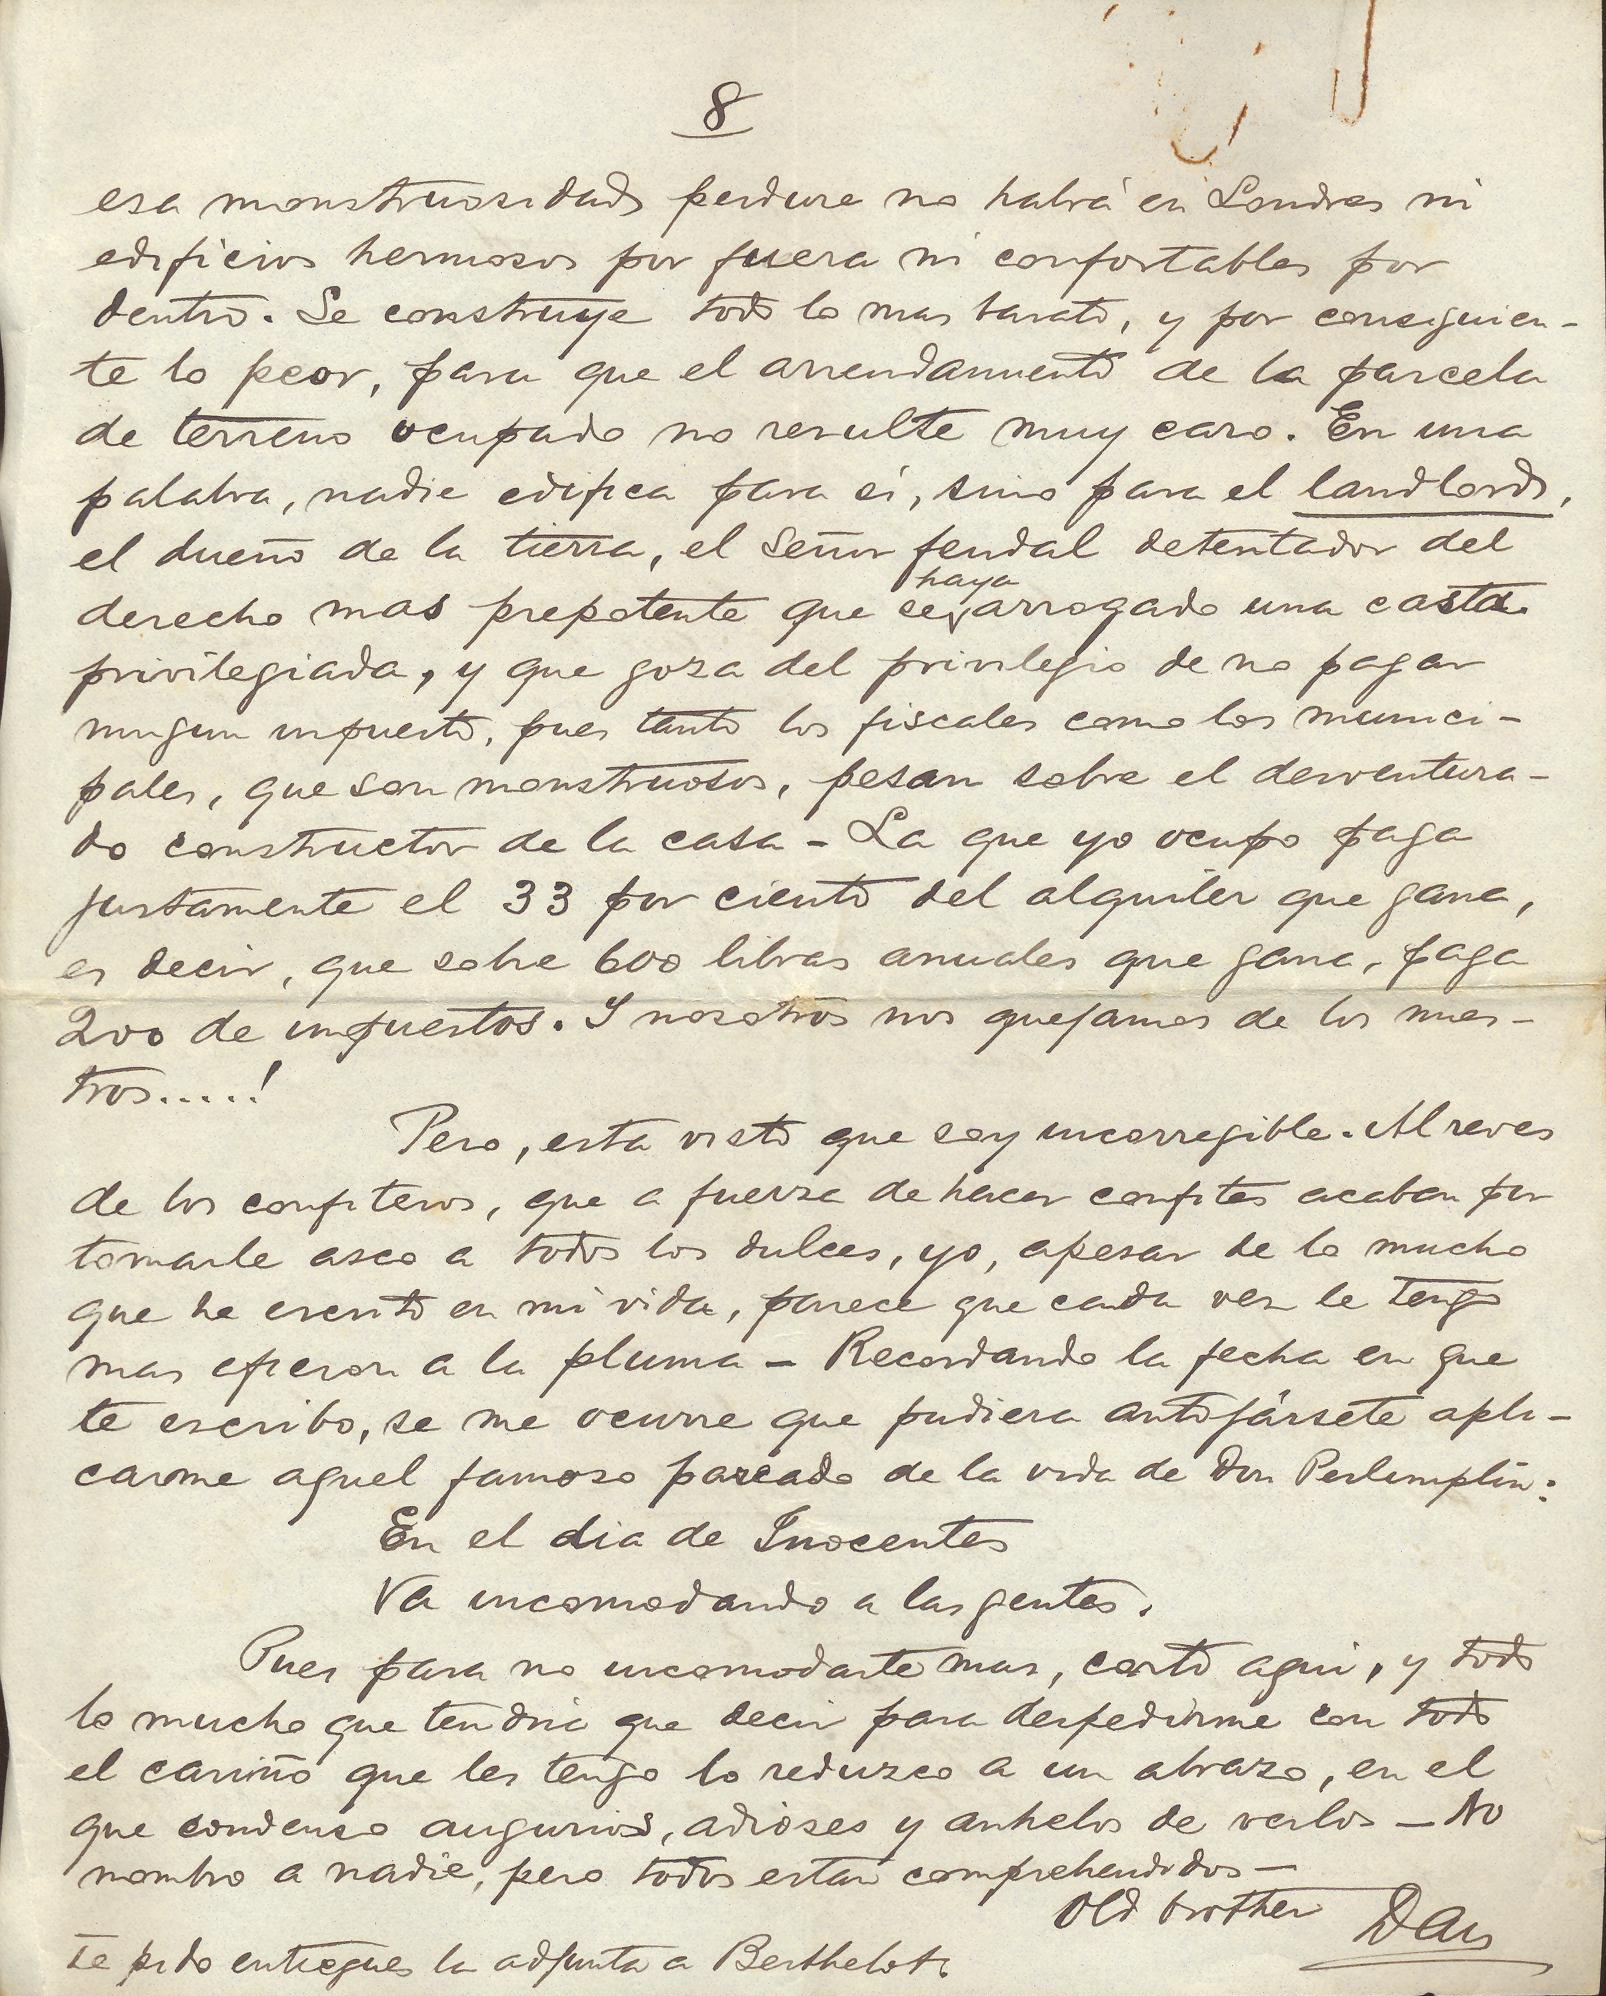 8
esa monstruosidad perdure no habrá en Londres ni
edificios hermosos por fuera ni confortables por
dentro. Se construye todo lo mas barato, y por consiguien-
te lo peor, para que el arrendamiento de la parcela
de terreno ocupado no resulte muy caro. En una
palabra, nadie edifica para sí, sino para el landlord,
el dueño de la tierra, el Señor feudal detentador del
derecho mas prepotente que se haya arrogado una casta
privilegiada, y que goza del privilegio de no pagar
ningun impuesto, pues tanto los fiscales como los munici-
pales, que son monstruosos, pesan sobre el desventura-
do constructor de la casa - La que yo ocupo paga
justamente el 33 por ciento del alquiler que gana,
es decir, que sobre 600 libras anuales que gana, paga
200 de impuestos. Y nosotros nos quejamos de los nues-
tros.....!
Pero, esta visto que soy incorregible. Al reves
de los confiteros, que a fuerza de hacer confites acaban por
tomarle asco a todos los dulces, yo, apesar de lo mucho
que he escrito en mi vida, parece que cada vez le tengo
mas aficion a la pluma - Recordando la fecha en que
te escribo, se me ocurre que pudiera antojársete apli-
carme aquel famoso pareado de la vida de Don Perlimplín:
En el dia de Inocentes
Va incomodando a las gentes.
Pues para no incomodarte mas, corto aquí, y todo
lo mucho que tendría que decir para despedirme con todo
el cariño que les tengo lo reduzco a un abrazo, en el
que condenso augurios, adioses y anhelos de verlos - No
nombro a nadie, pero todos estan comprehendidos -
Old brother Dan
Te pido entregues la adjunta a Berthelot.